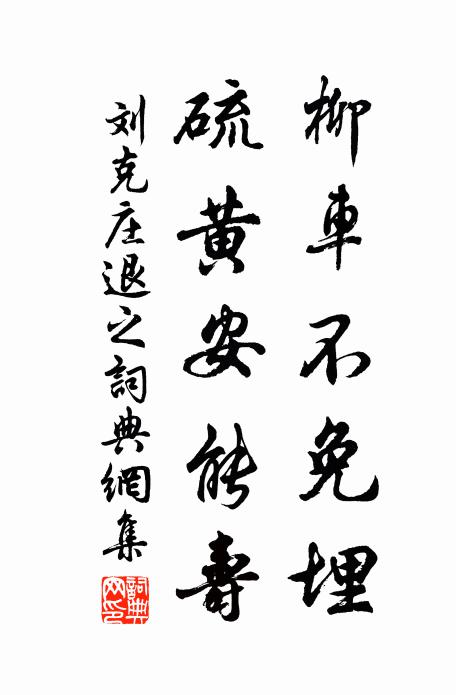 柳車不免埋
硫黄安能壽
刘克庄退之詞典網集
詞典网印